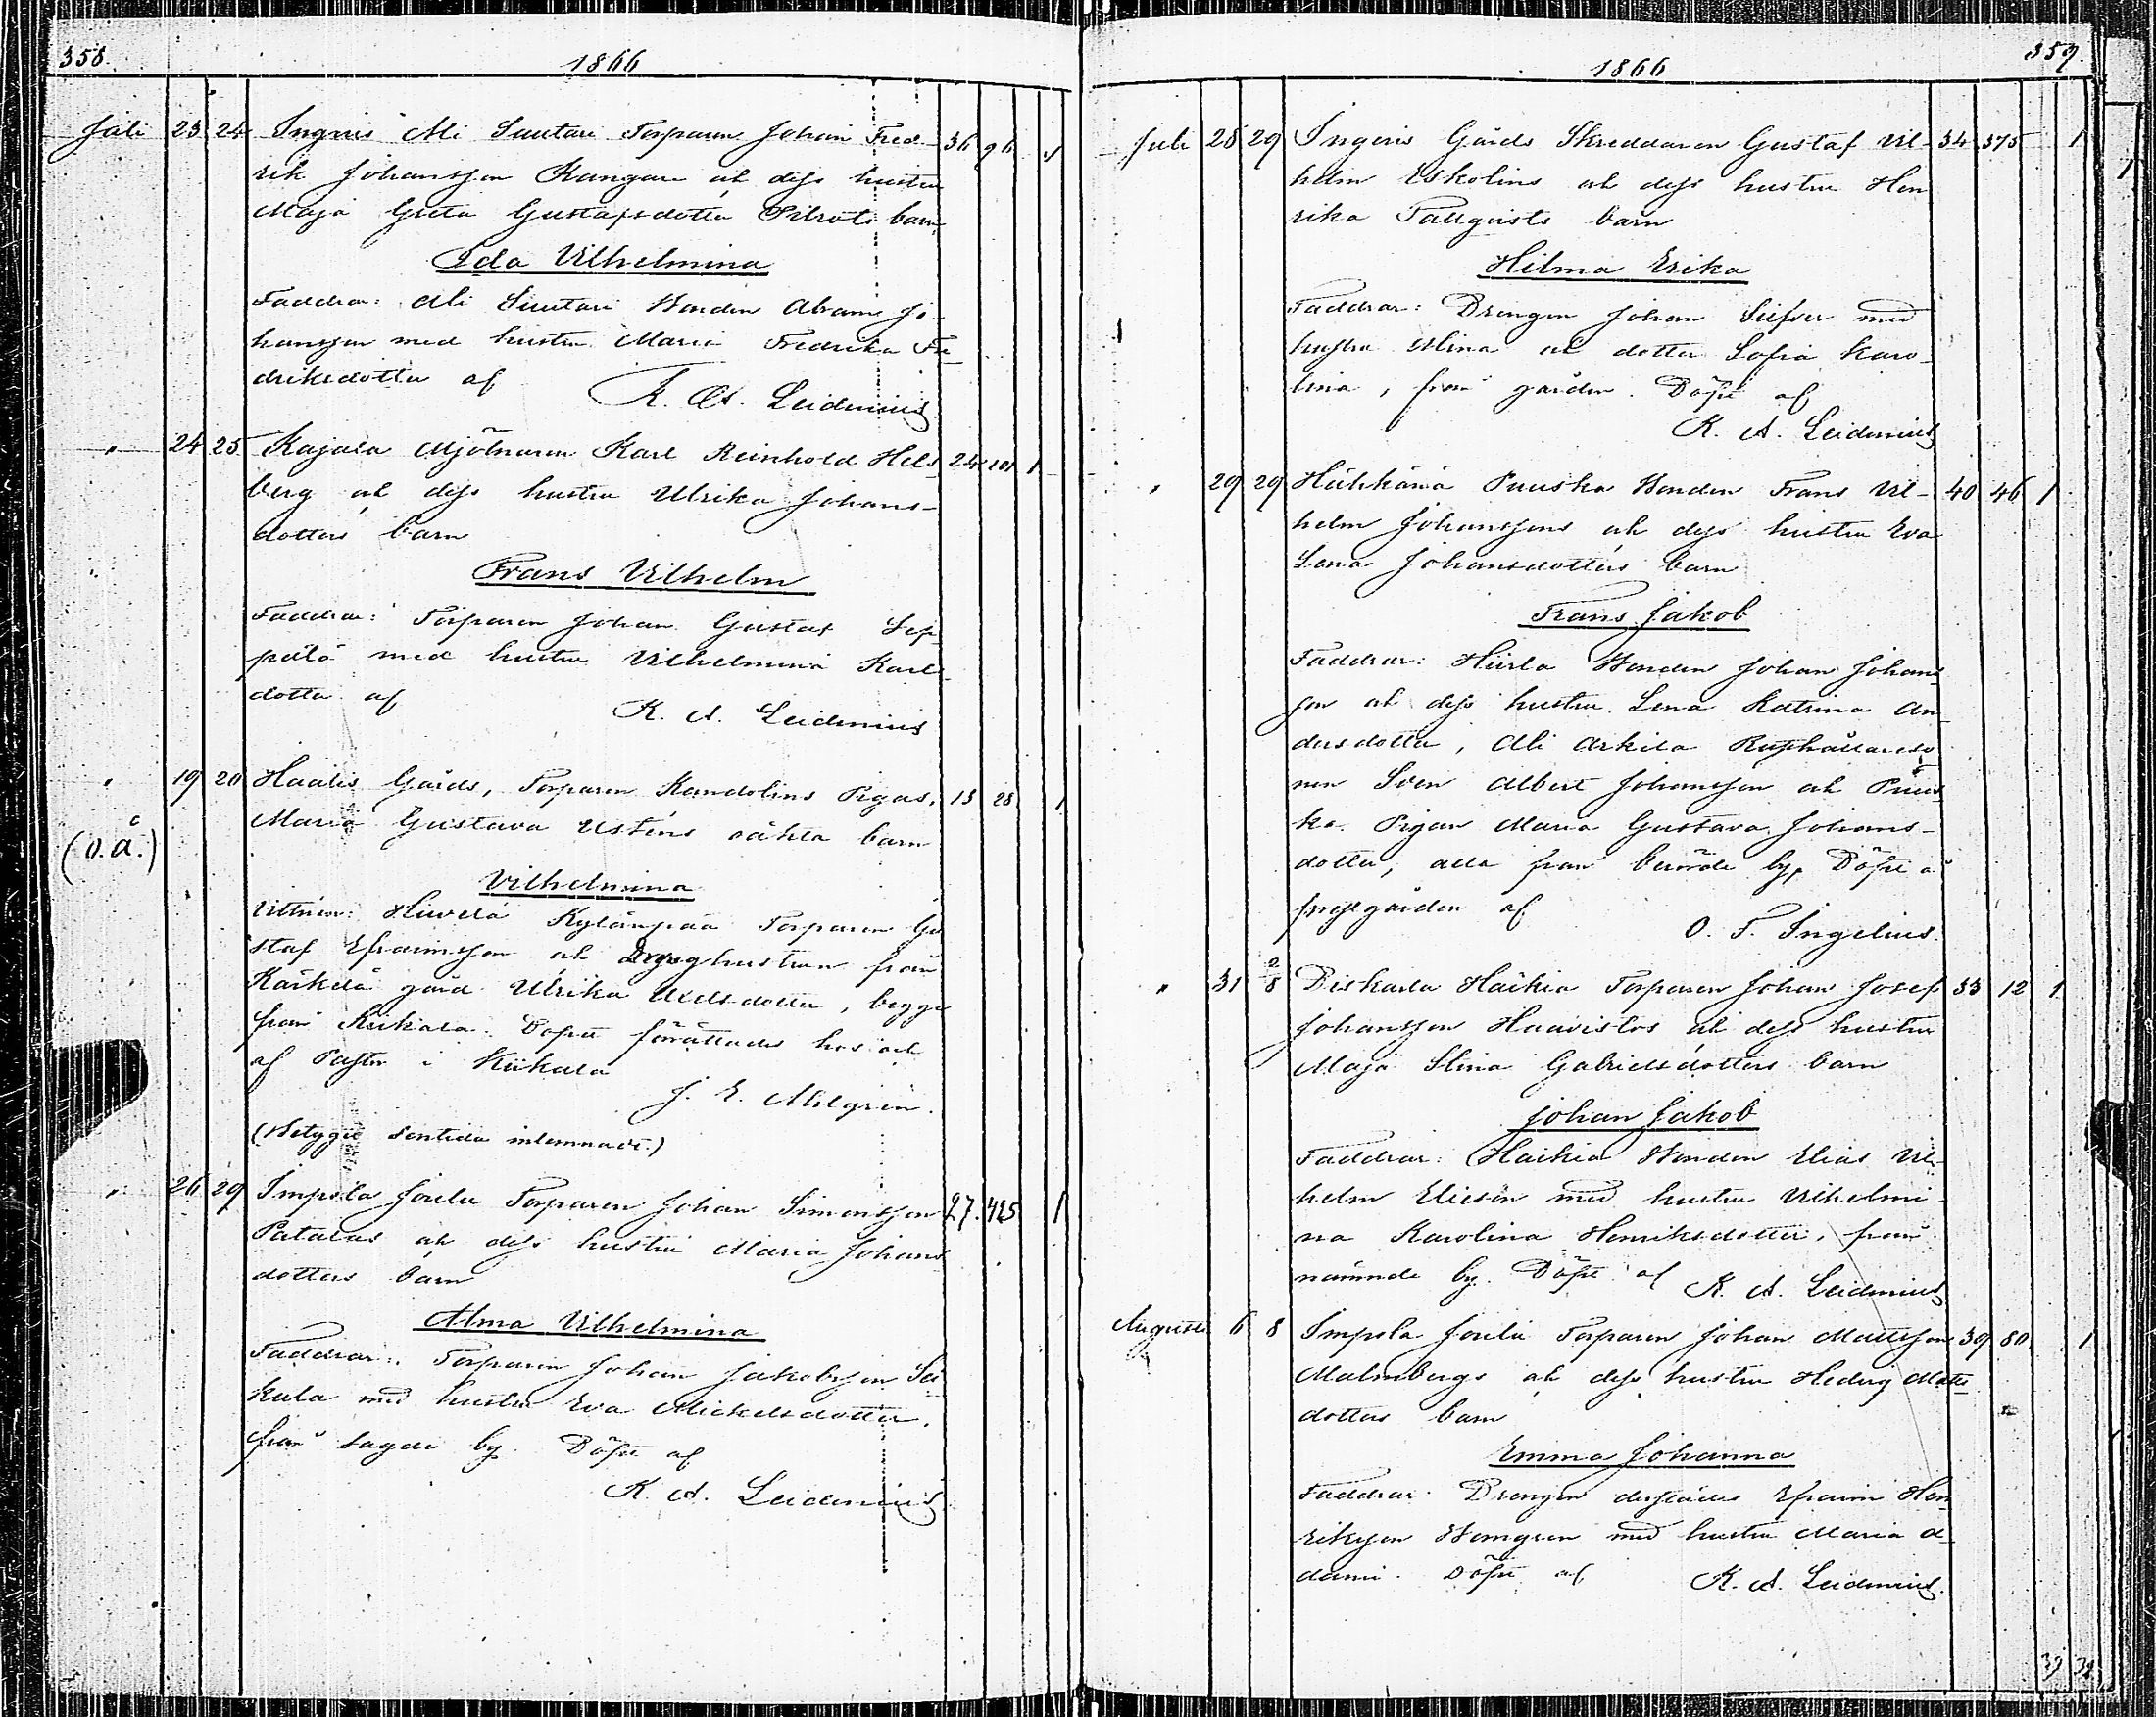 358.
1866
Juli 23 24 Ingeris Ali Suutari Torparen Johan Fred- 36 96 1
rik Johansson Kangars ok dess hustru
Maja Greta Gustafsdotter barn
Ida Vilhelmina
Faddrar: Ali Suutari Bonden Abram Jo-
hansson med hustru Maria Fredrika Fre-
driksdotter af K. A. Leidenius
" 24 25 Kajala Mjölnaren Karl Reinhold Hels- 24 101 1
berg ok dess hustru Ulrika Johans-
dotters barn
Frans Vilhelm
Faddrar: Torparen Johan Gustaf Sep-
pälä med hustru Vilhelmina Karls-
dotter af K. A. Leidenius
" 19 20 Haalis Gårds, Torparen Kandolins Pigas, 13 28 1
(o.ä.) Maria Gustava Usténs oäkta barn
Vilhelmina
Vittnen: Torparen Gu-
staf Efraimsson ok från
Kärkelä gård Ulrika Axelsdotter, begge
från Kiikala. Dopet förättades hos ok
af Pastor i Kiikala
J. E. Ahlgrén.
(Betyget sentida inlemnadt.)
" 26 29 Impola Jovila Torparen Johan Simonsson 27. 425 1
Patalas ok dess hustru Maria Johans-
dotters barn
Alma Vilhelmina
Faddrar: Torparen Johan Jakobsson
kula med hustru Eva Mickelsdotter,
från sagde by. Döpt af
K. A. Leidenius
359.
1866
Juli 28 29 Ingeris Gårds Skreddaren Gustaf Vil- 34 375 1
helm Eskolins ok dess hustru Hen
rika Tallqvists barn
Hilma Erika
Faddrar: Drengen Johan med
hustru Mina ok dotter Sofia Karo-
lina, från gården. Döpt af
K. A. Leidenius
" 29 29 Hähkänä Puuska Bonden Frans Vil- 40 46 1
helm Johanssons ok dess hustru Eva
Lena Johansdotters barn
Frans Jakob
Faddrar: Bonden Johan Johans-
son ok dess hustru Lena Katrina An-
dersdotter, Ali Arkila Rusthållareso-
nen Sven Albert Johansson ok Puus-
ka Pigan Maria Gustava Johans-
dotter, alla från berörde by, Döpt å
prestgården af O. F. Ingelius.
" 31 2/8 Piskarla Häikiä Torparen Johan Josef 33 12 1
Johansson Haavistos ok dess hustru
Maja Stina Gabrielsdotters barn
Johan Jakob
Faddrar: Häikiä Bonden Elias Vil-
helm Eliesön med hustru Vilhelmi-
na Karolina Henriksdotter, från
nämnde by. Döpt af K. A. Leidenius
Augusti 6 8 Impola Jovila Torparen Johan Mattsson 39 80 1
Malmbergs ok dess hustru Hedvig Matts-
dotters barn
Emma Johanna
Faddrar: Drengen derstädes Efraim Hen-
riksson med hustru Maria A-
dami. Döpt af K. A. Leidenius.